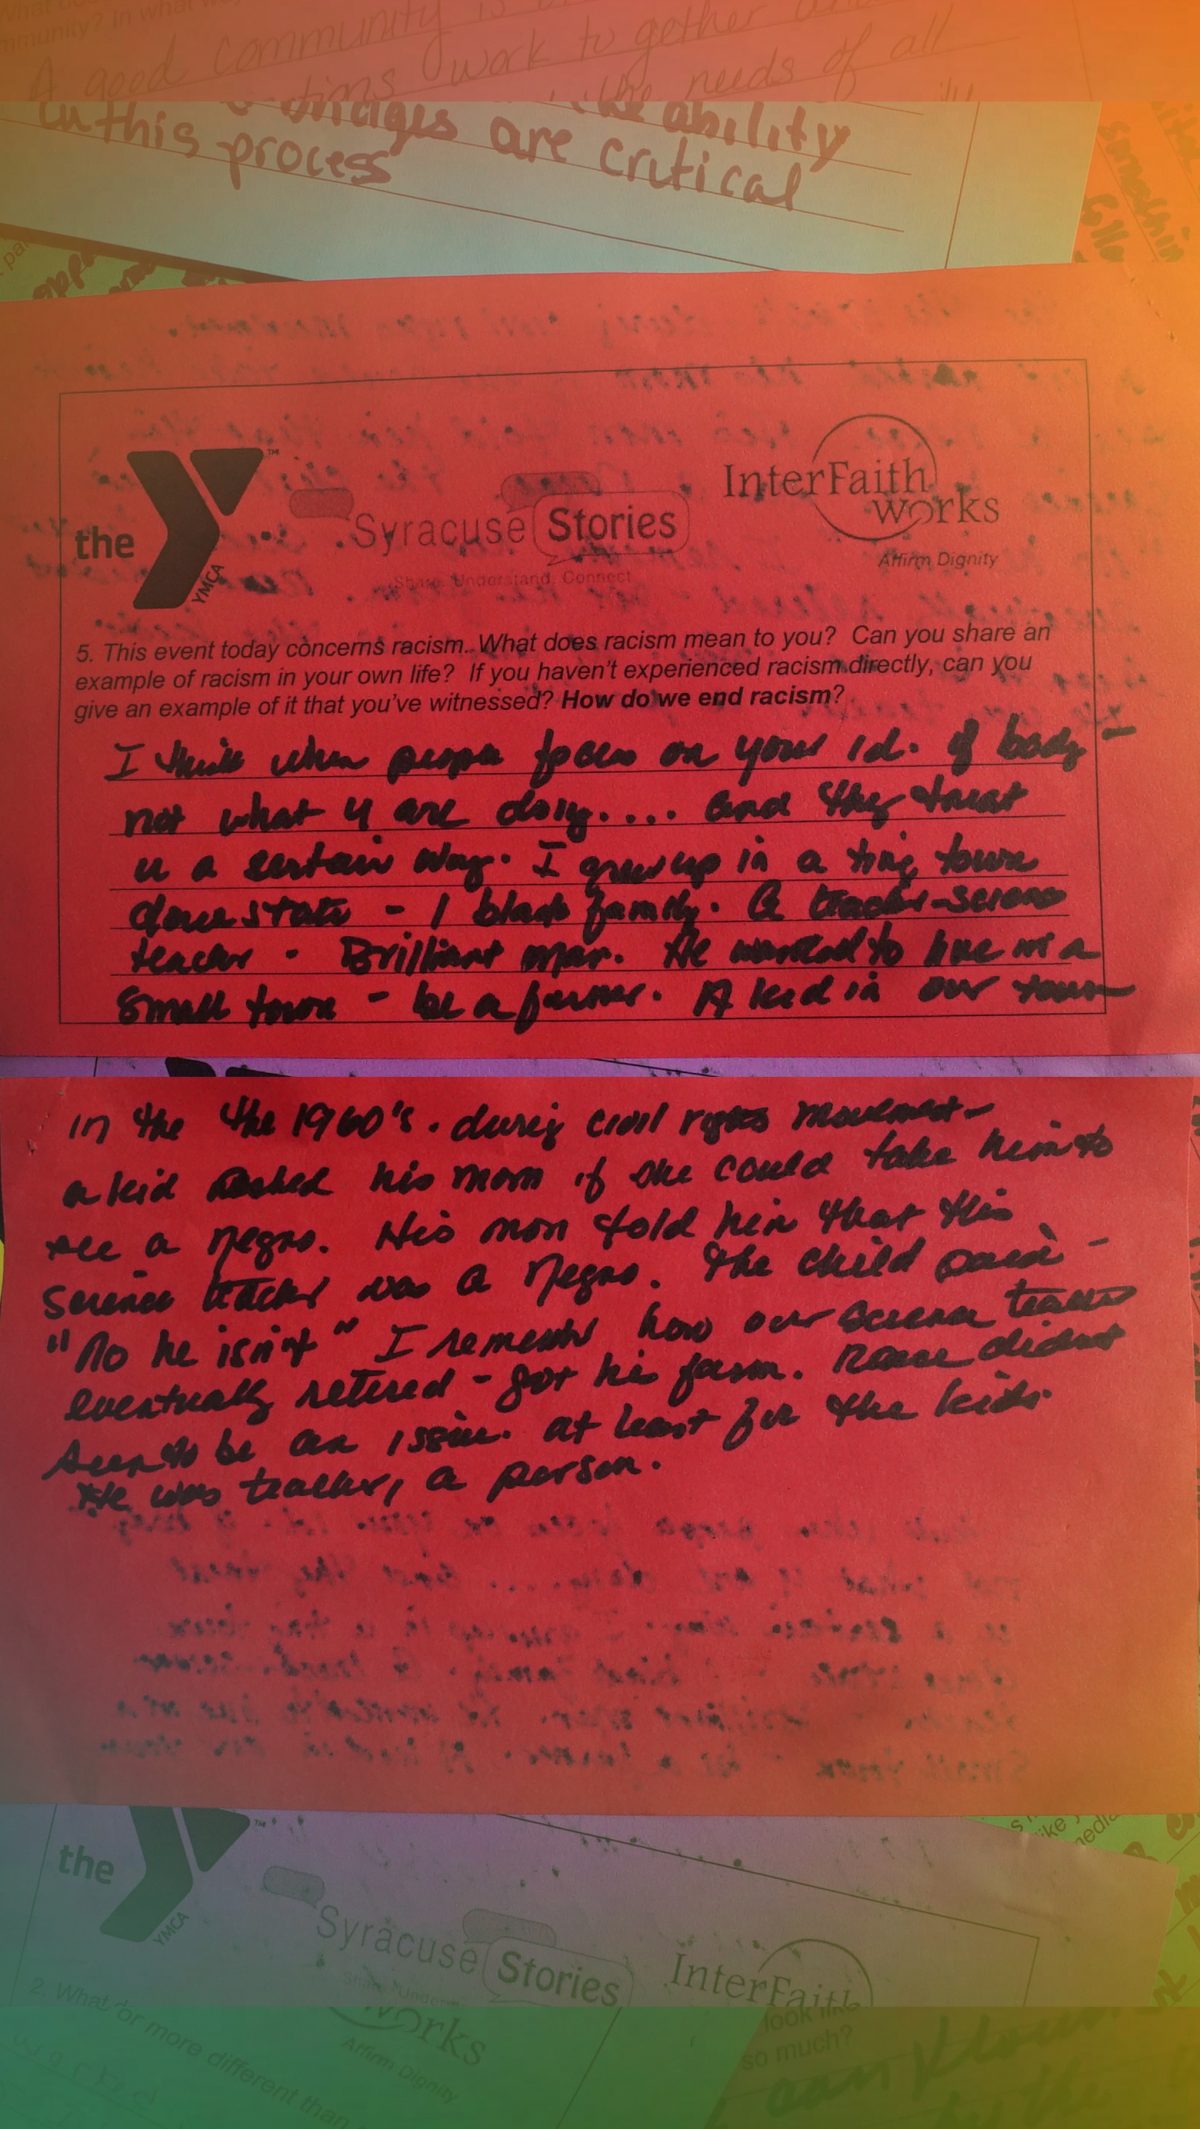 A good community is
work to gether
the needs of all
the ability
bridges are critical
in this process
the
YMCA
Syracuse Stories
Share. Understand. Connect
InterFaith
works
Affirm Dignity
5. This event today concerns racism. What does racism mean to you? Can you share an
example of racism in your own life? If you haven't experienced racism directly, can you
give an example of it that you've witnessed? How do we end racism?
I think when people focus on your id. of body -
not what u are doing.... and they treat
u a certain way. I grew up in a tiny town
downstate - 1 black family. A teacher - science
teacher - Brilliant man. He wanted to live in a
small town - be a farmer. A kid in our town
in the the 1960's. during civil rights movement -
a kid asked his mom if she could take him to
see a negro. His mom told him that this
science teacher was a negro. The child said -
"No he isn't" I remember how our science teacher
eventually retired - got his farm. Race didn't
seem to be an issue. at least for the kids.
He was teacher, a person.
the
YMCA
Syracuse Stories
InterFaith
works
Affirm Dignity
2. What
or more different than
look like
so much?